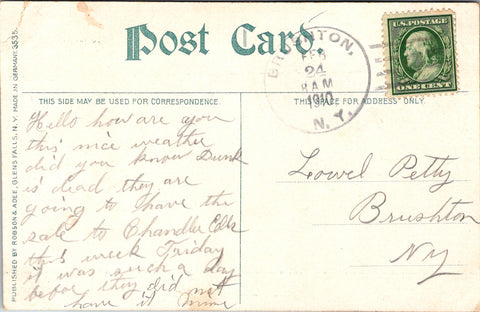 Post Card.
U.S. POSTAGE
ONE CENT
BRUSHTON,
FEB
24
8 AM
1910
N. Y.
THIS SIDE MAY BE USED FOR CORRESPONDENCE.
THIS SPACE FOR ADDRESS ONLY.
PUBLISHED BY ROBSON & ADEE, GLENS FALLS, N. Y. MADE IN GERMANY. 3535.
Hello how are you
this nice weather
did you know Dunk
is dead they are
going to have the
sale to Chandler
this week Friday
it was such a day
before they did not
have it
Lowel Petty
Brushton
NY